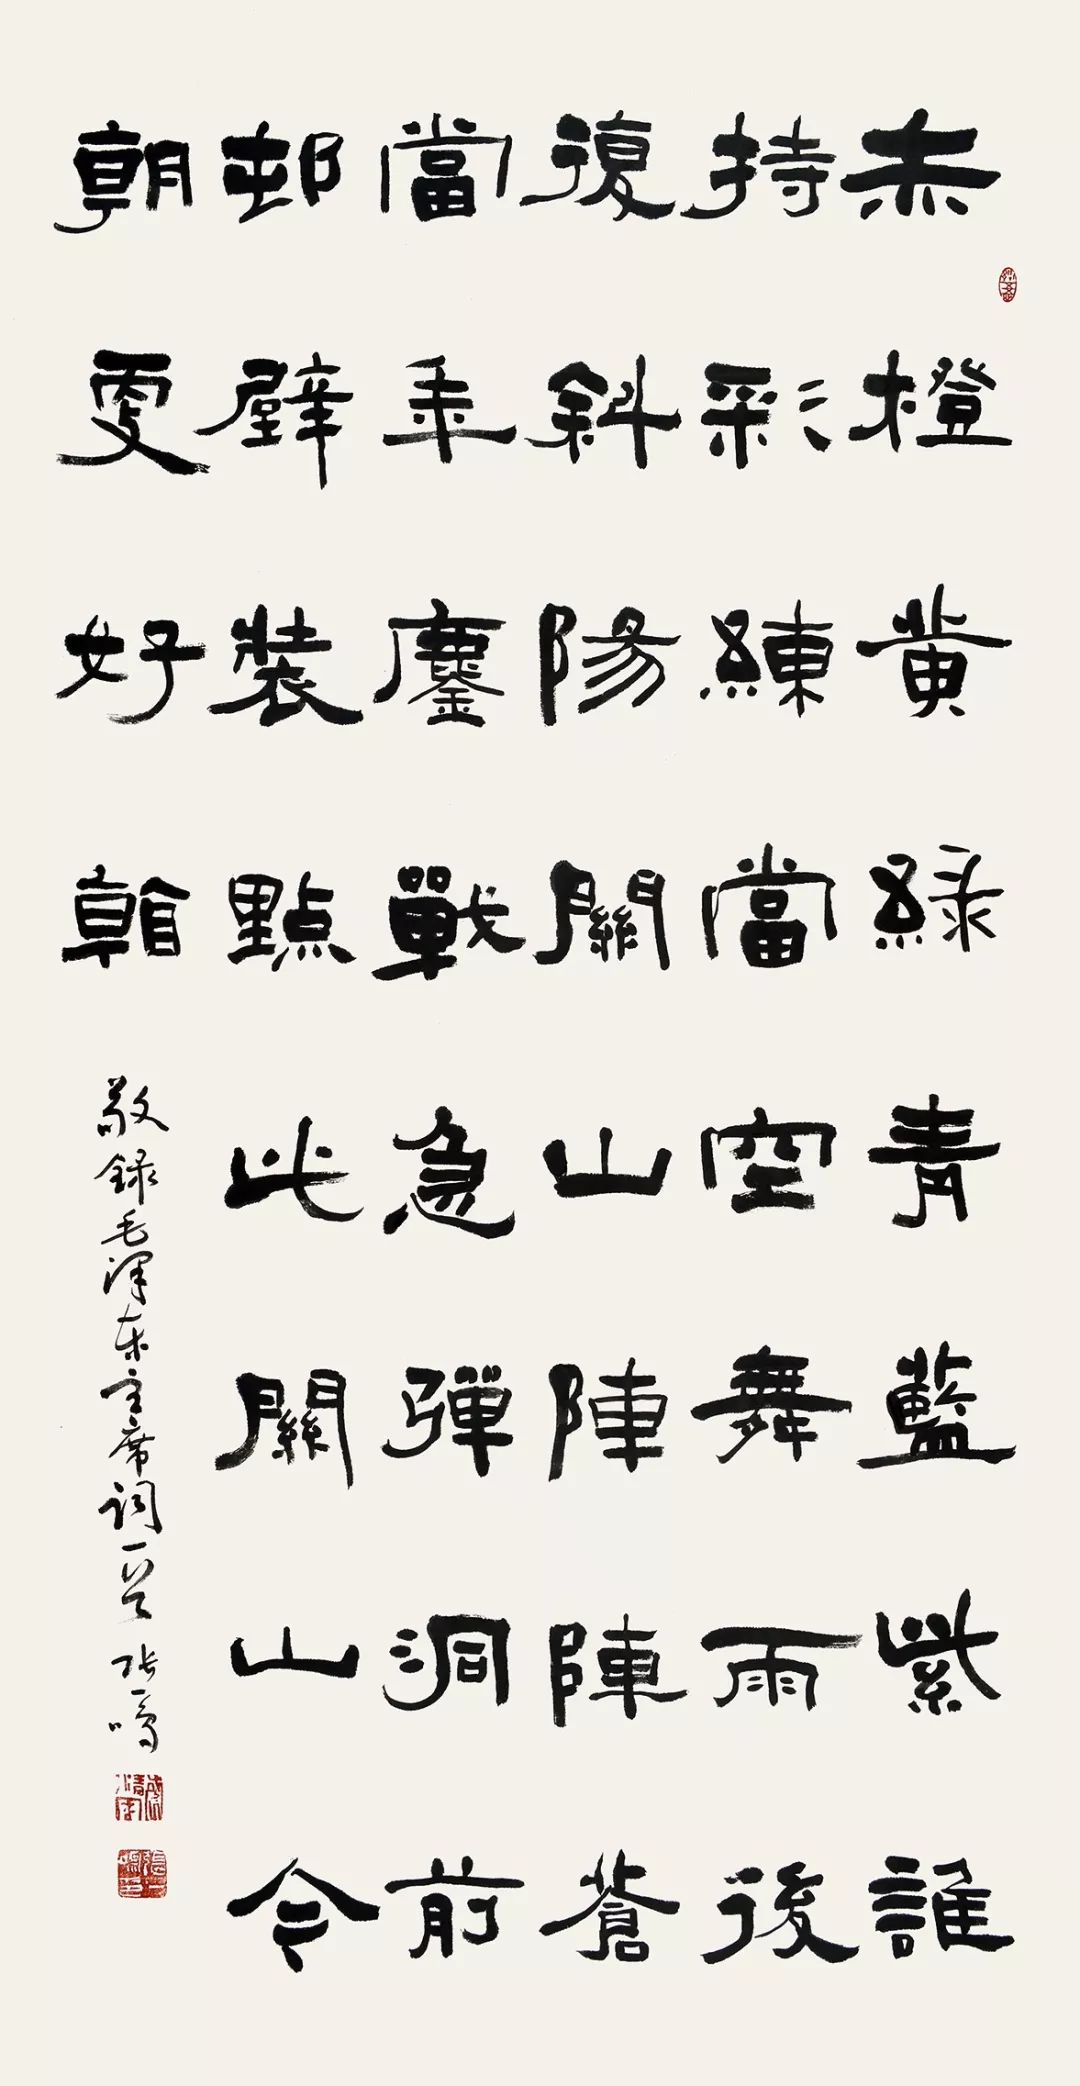 赤橙黃綠青藍紫誰
持彩練當空舞雨後
復斜陽關山陣陣蒼
當年鏖戰急彈洞前
邨壁裝點此關山令
朝更好看
敬錄毛澤東主席詞一首 张鳴